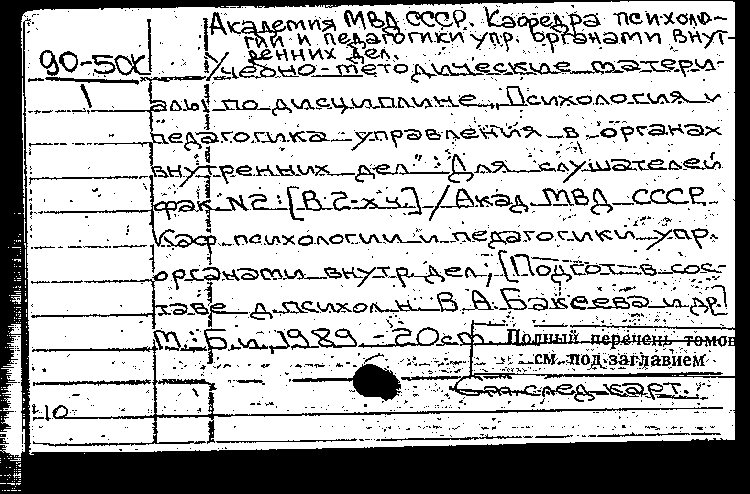 Академия МВД СССР. Кафедра психоло-
гии и педагогики упр. органами внут-
ренних дел.
90-50К
1
Учебно-методические матери-
алы по дисциплине „Психология и
педагогика управления в органах
внутренних дел": Для слушателей
фак. N2: [В 2-х ч.] / Акад. МВД СССР.
Каф. психологии и педагогики упр.
органами внутр. дел; [Подгот. в сос-
таве д. психол. н. В.А. Бакеева и др.]
М.: Б.и, 1989. - 20 см.
Полный перечень томов
см. под заглавием
См. след. карт.
10